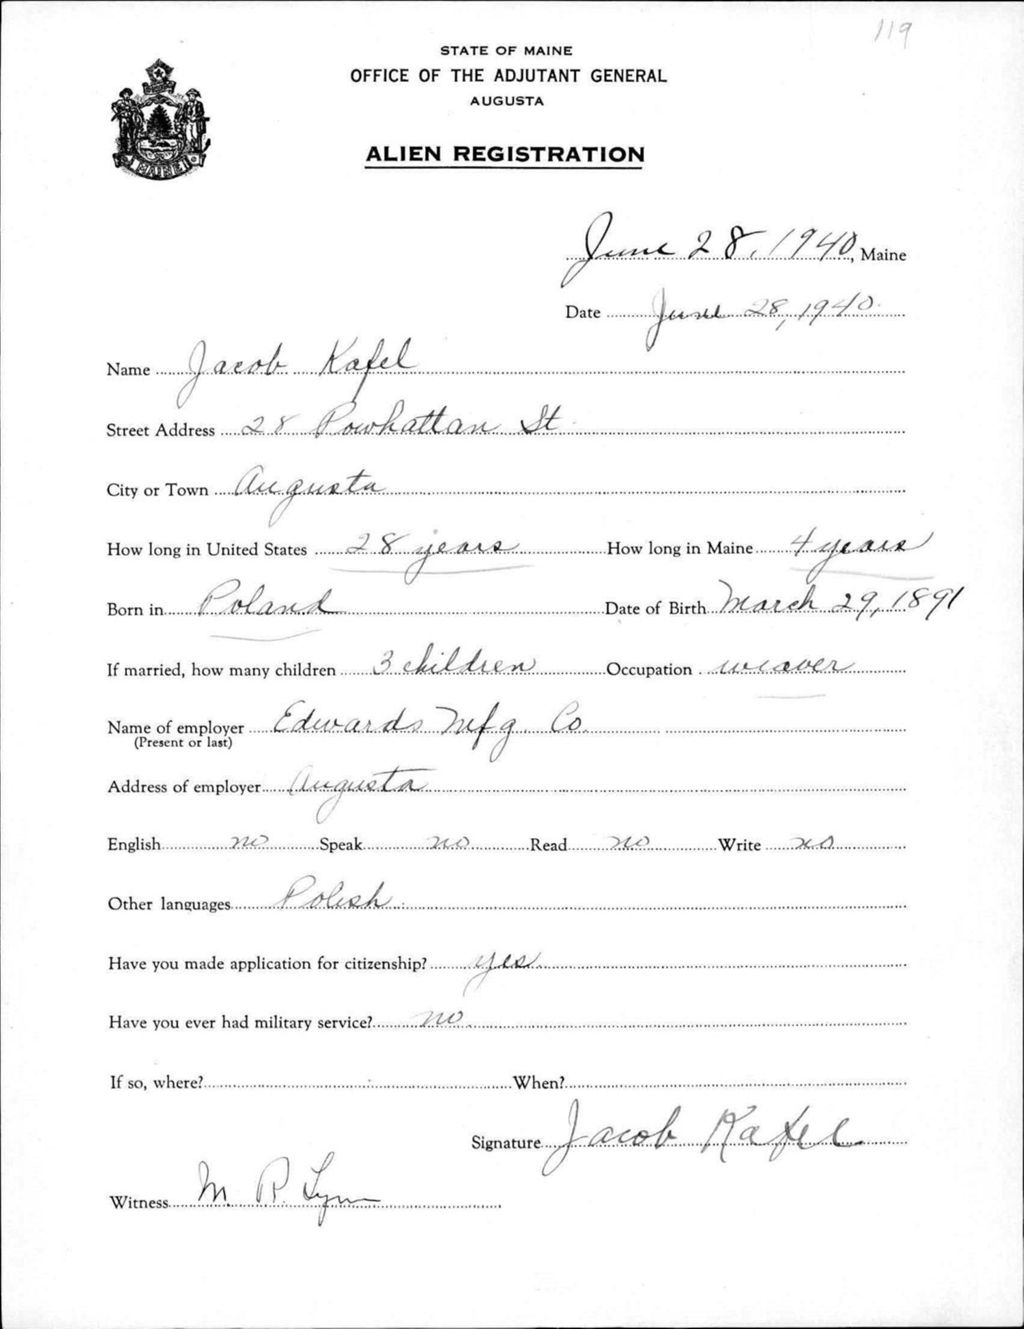 119
STATE OF MAINE
OFFICE OF THE ADJUTANT GENERAL
AUGUSTA
ALIEN REGISTRATION
June 28, 1940, Maine
Date June 28, 1940
Name Jacob Kafel
Street Address 28 Powhattan St
City or Town Augusta
How long in United States 28 years How long in Maine 4 years
Born in Poland Date of Birth March 29, 1891
If married, how many children 3 children Occupation weaver
Name of employer Edwards Mfg. Co.
(Present or last)
Address of employer Augusta
English no Speak no Read no Write no
Other languages Polish
Have you made application for citizenship? yes
Have you ever had military service? no
If so, where? When?
Signature Jacob Kafel
Witness M. R. Lynn